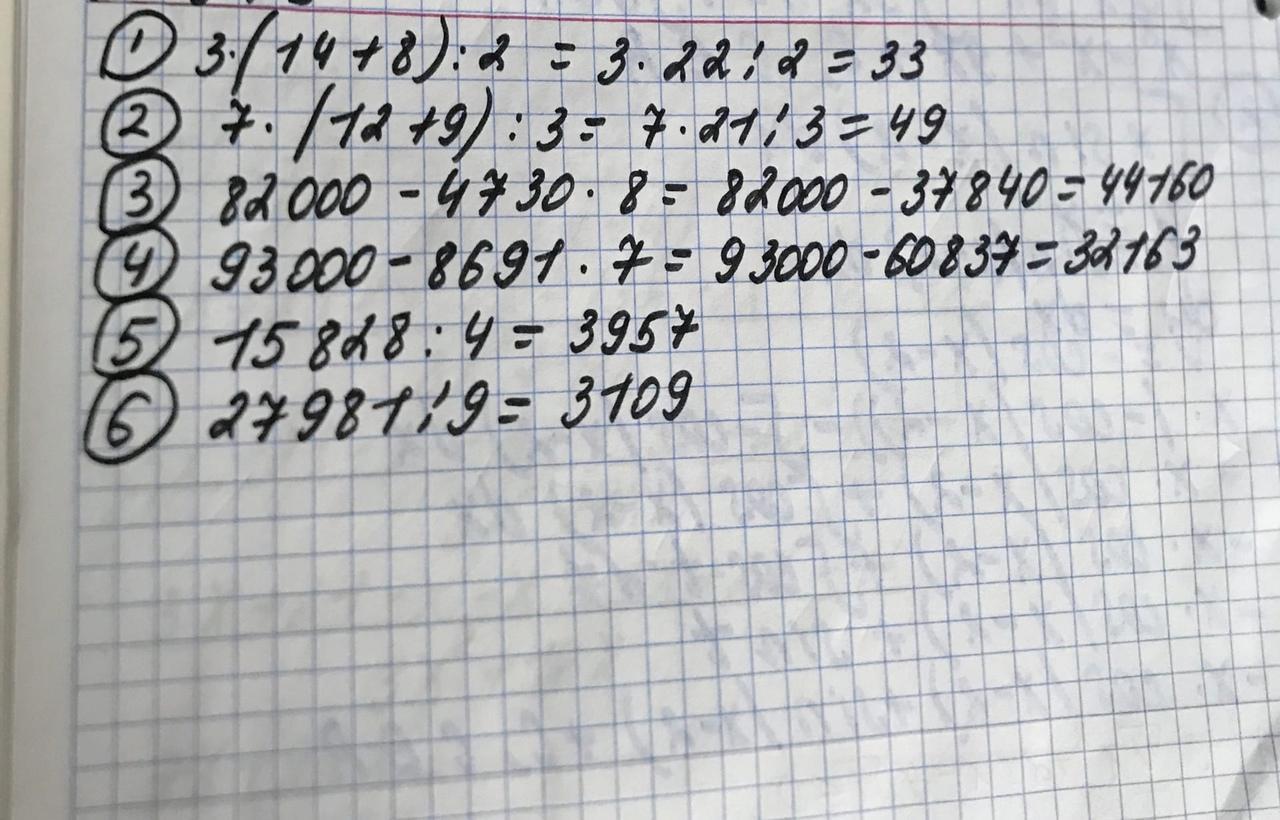 ① 3·(14+8):2 = 3·22:2=33
② 7·(12+9):3= 7·21:3=49
③ 82000-4730·8= 82000-37840=44160
④ 93000-8691·7= 93000-60837=32163
⑤ 15828:4= 3957
⑥ 27981:9= 3109